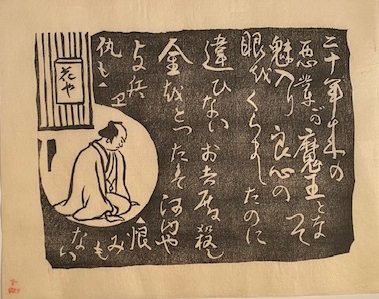 二十年来の
悪業が魔王となつて
魅入り良心の
眼をくらましたのに
違ひないお吉殿殺し
金をとつたは河内や
与兵
衛
仇も
恨
みも
ない
花や